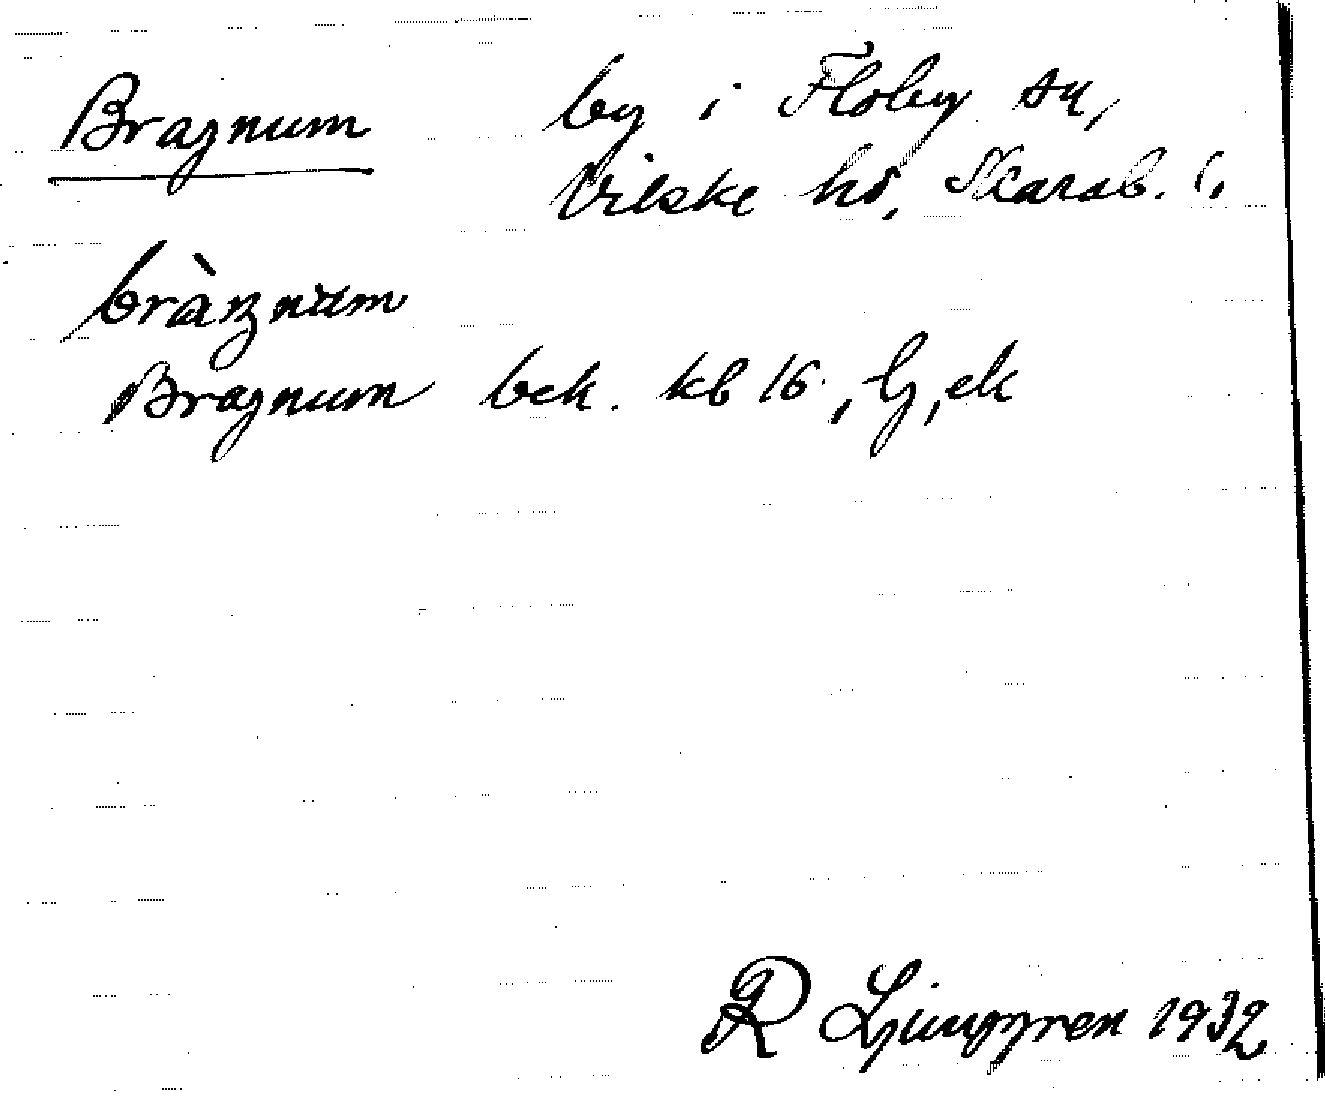 Bragnum by i Floby sn,
Vilske hd, Skarab. l.
bràŋnum
Bragnum bek. kb 16, G, ek
R Ljunggren 1932